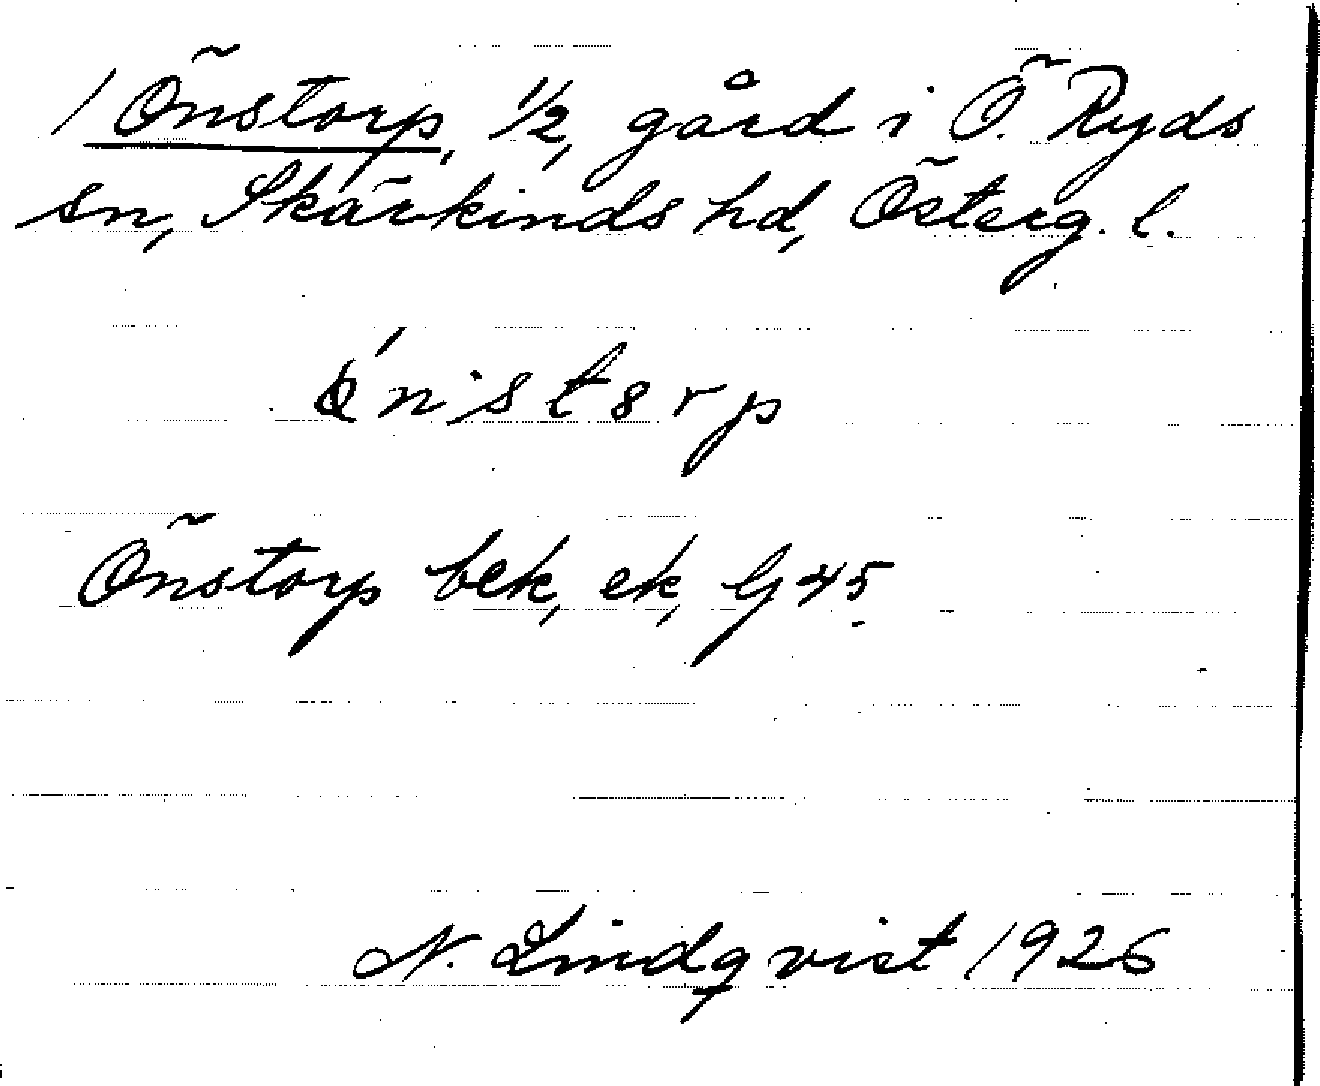 1 Önstorp, 1/2, gård i Ö. Ryds
sn, Skärkinds hd, Österg. l.
Önstorp bek, ek, Gj 45
N. Lindqvist 1926